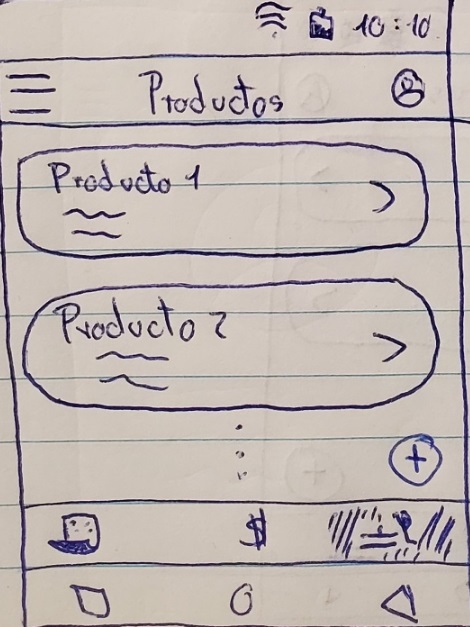 10:10
Productos
Producto 1
Producto 2
$